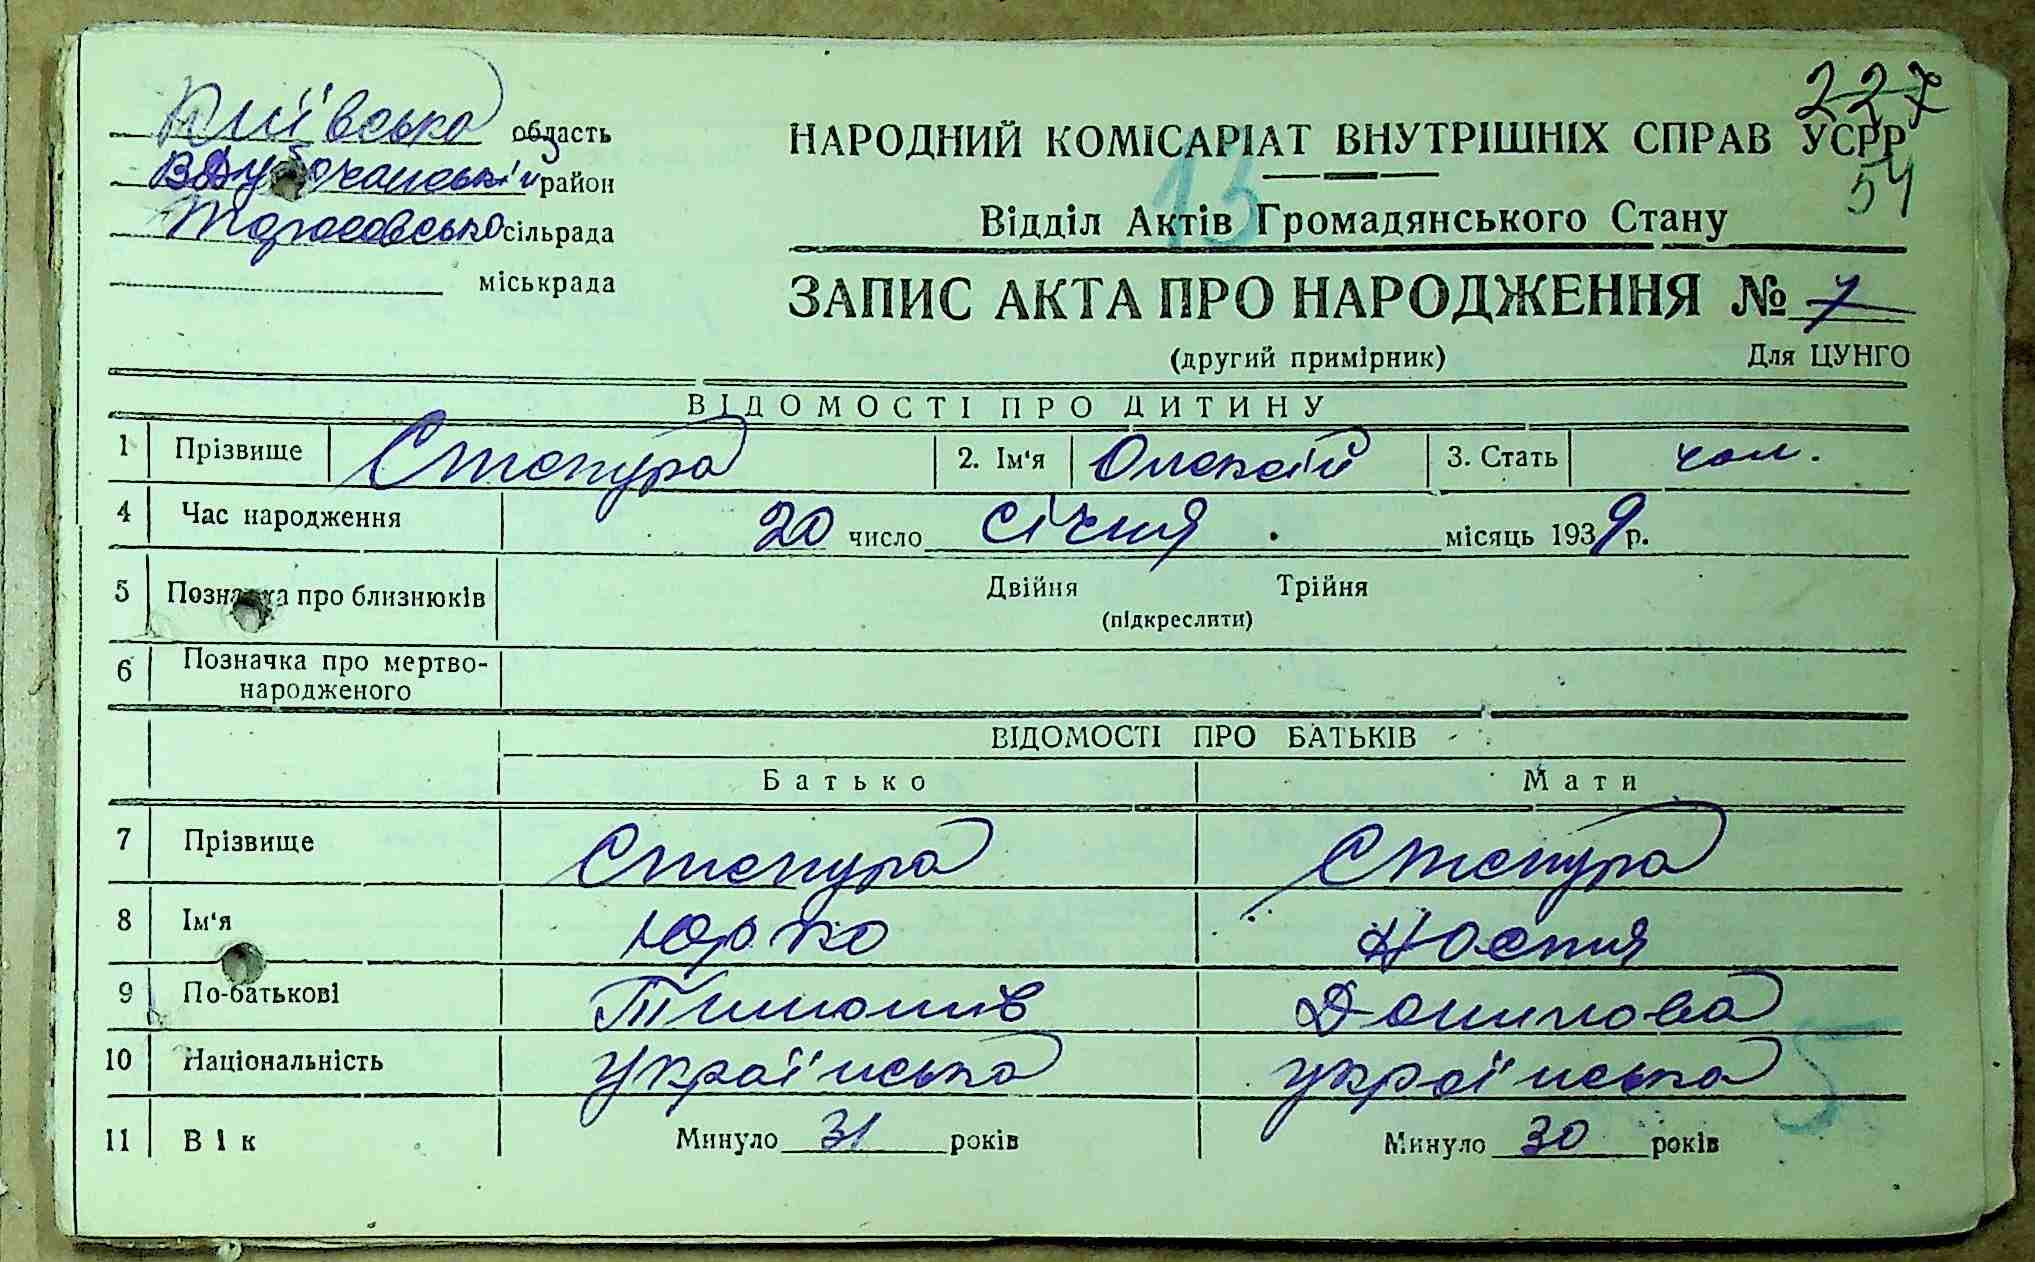 Київська область
В Дубечанський район
Тарасовська сільрада
міськрада
227
54
13
НАРОДНИЙ КОМІСАРІАТ ВНУТРІШНІХ СПРАВ УСРР
Відділ Актів Громадянського Стану
ЗАПИС АКТА ПРО НАРОДЖЕННЯ № 7
(другий примірник) Для ЦУНГО
ВІДОМОСТІ ПРО ДИТИНУ
1 Прізвище Степура 2. Ім'я Олексій 3. Стать чол.
4 Час народження 20 число січня місяць 1939 р.
5 Позначка про близнюків Двійня Трійня
(підкреслити)
6 Позначка про мертво-
народженого
ВІДОМОСТІ ПРО БАТЬКІВ
Батько Мати
7 Прізвище Степура Степура
8 Ім'я Юрко Настя
9 По-батькові Данилова
10 Національність українська українська
5
11 Вік Минуло 31 років Минуло 30 років